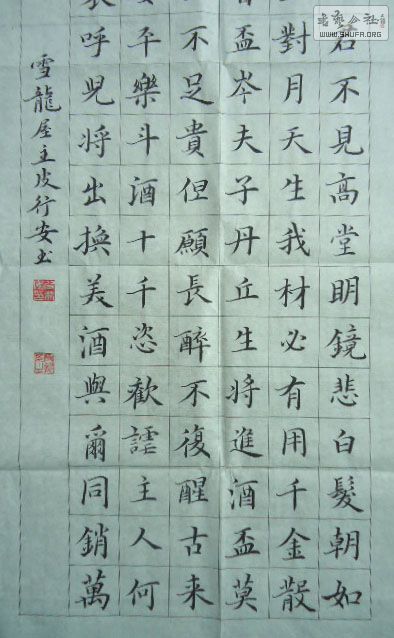 君不見高堂明鏡悲白髮朝如
對月天生我材必有用千金散
盃岑夫子丹丘生将進酒盃莫
不足貴但願長醉不復醒古来
平樂斗酒十千恣歡謔主人何
呼兒将出換美酒與爾同銷萬
雪龍屋主皮行安书
书藝公社
WWW.SHUFA.ORG